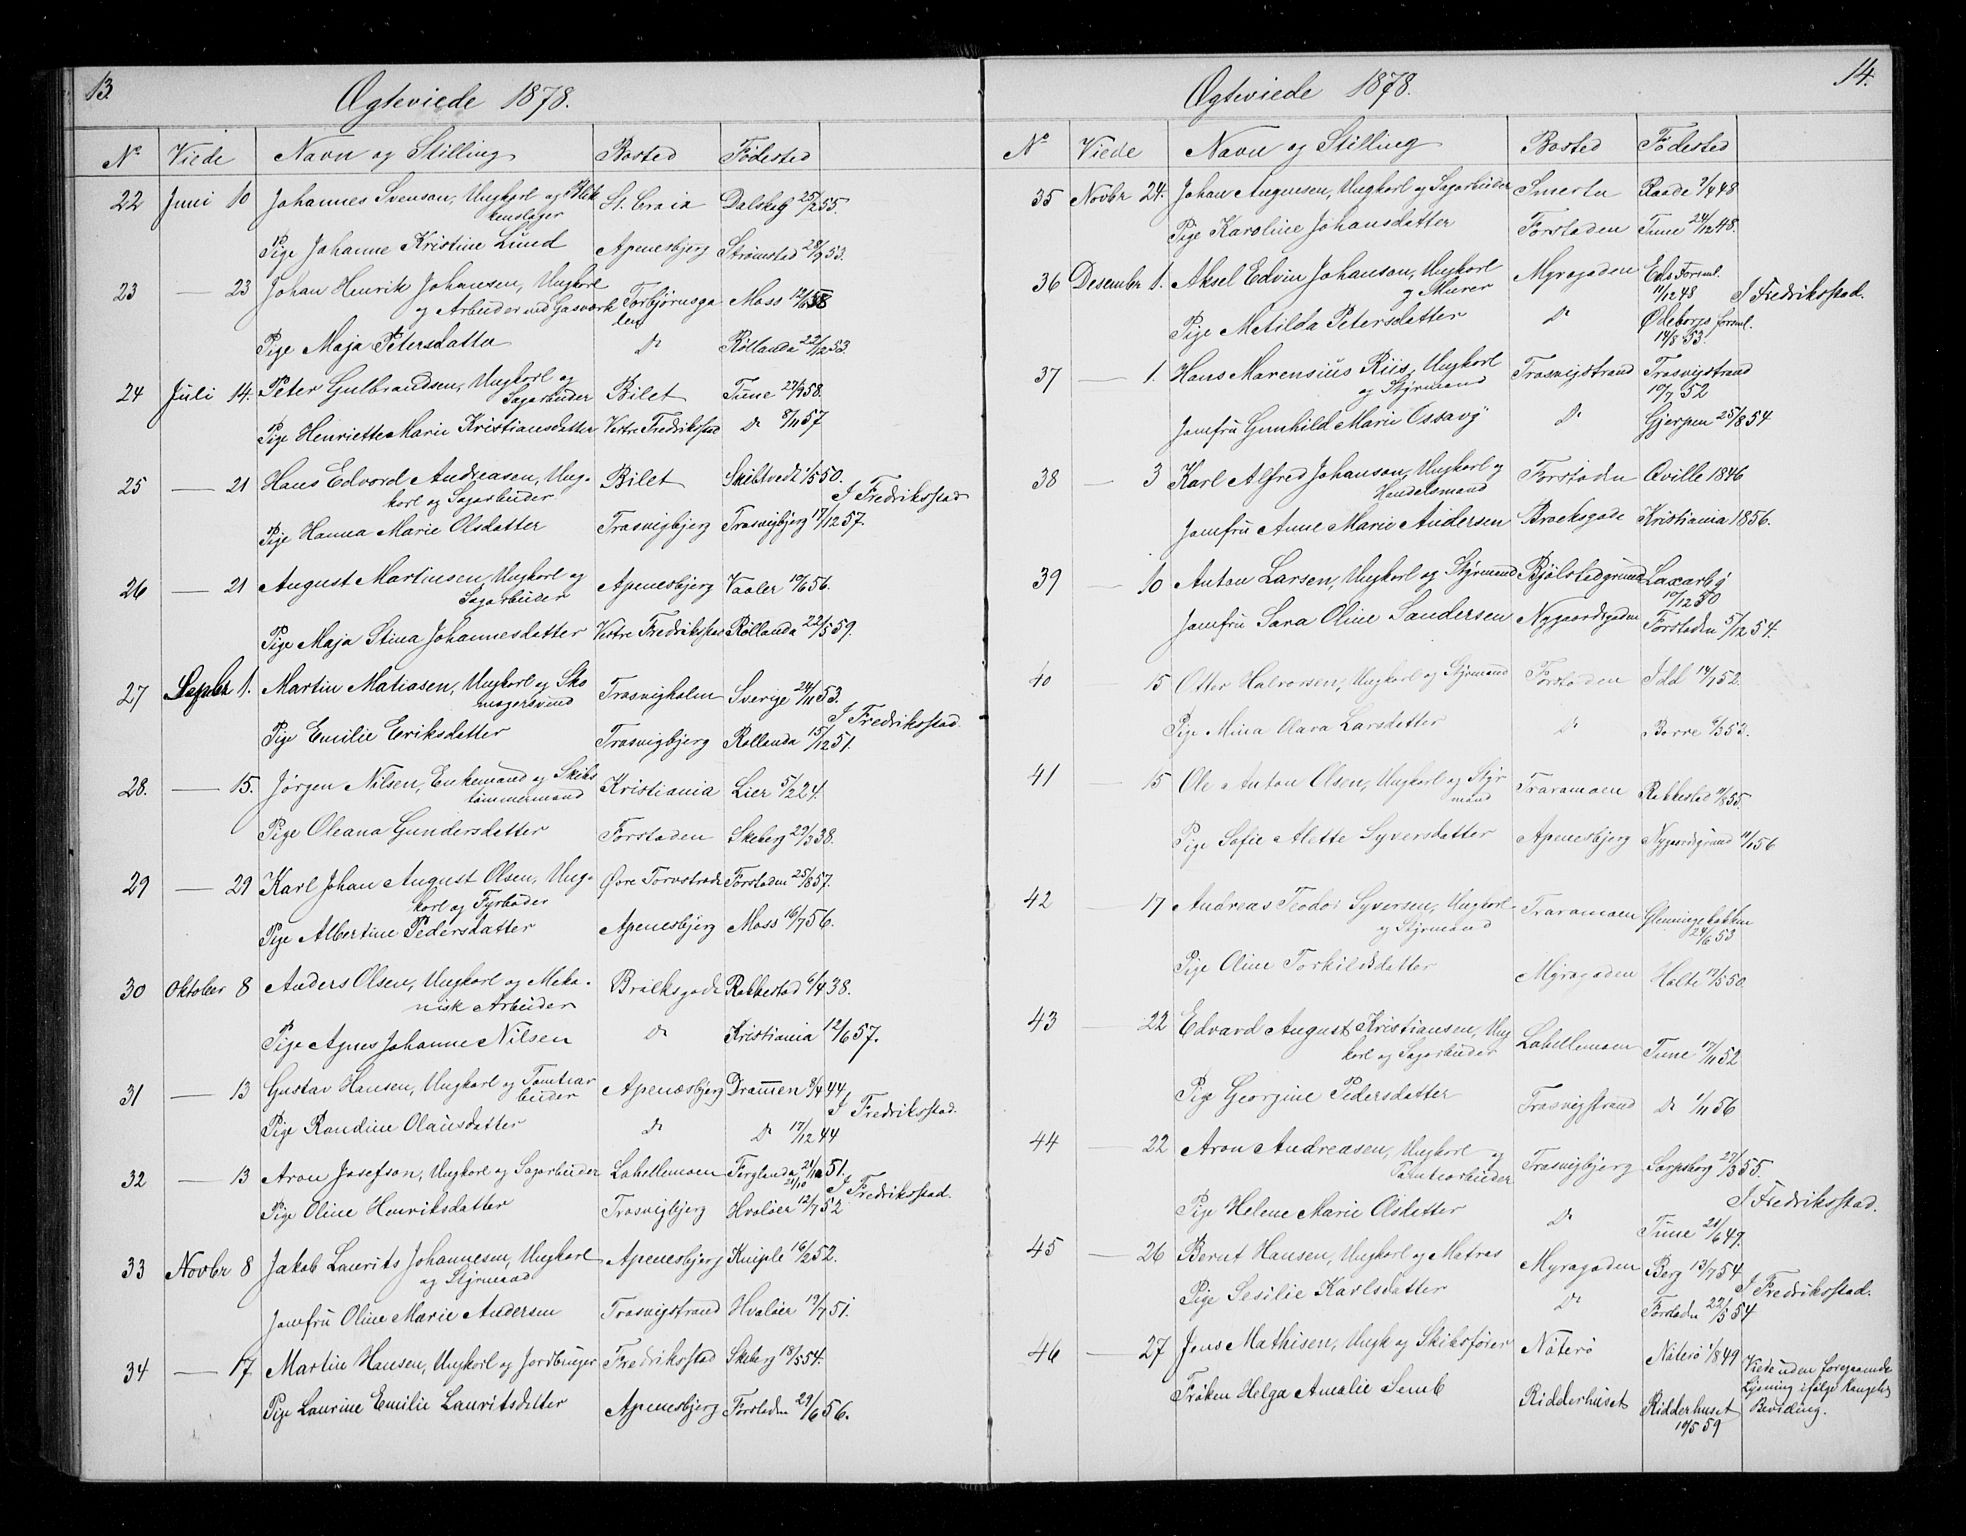 13.
Ægteviede 1878.
No Viede Navn og Stilling Bosted Fødested
22 Juni 10 Johannes Svenson, Ungkarl og Blik St. Croix Dalskog 25/2 55.
kenslager
Pige Johanne Kristine Lund Apenesbjerg Strømstad 28/9 53.
23 — 23 Johan Henrik Johansen, Ungkarl
og Arbeider ved Gasværk Torbjørnsga Moss
den
Pige Maja Petersdatter Do Röllanda 22/12 53.
24 Juli 14. Peter Gulbrandsen, Ungkarl og Bilet Tune 27/9 58.
Sagarbeider
Pige Henriette Marie Kristiansdatter Vestre Fredriksstad Do 8/11 57
25 — 21 Hans Edvard Andreasen, Ung- Bilet Skibtvedt 1/5 50.
karl og Sagarbeider I Fredriksstad
Pige Hanna Marie Olsdatter Trosvigbjerg Trosvigbjerg 17/12 57.
26 — 21 August Martinsen, Ungkarl og Apenesbjerg Vaaler 10/6 56.
Sagarbeider
Pige Maja Stina Johannesdatter Vestre Fredriksstad Röllanda 22/5 59.
27 Septbr 1. Martin Matiasen, Ungkarl og Sko Trosvigholm Sverige 24/11 53.
magersvend I Fredriksstad.
Pige Emilie Eriksdatter Trosvigbjerg Rollanda 15/12 51.
28. — 15. Jørgen Nilsen, Enkemand og Skibs Kristiania Lier 5/2 24.
tømmermand
Pige Oleana Gundersdatter Forstaden Skeberg 29/3 38.
29 — 29 Karl Johan August Olsen, Ung- Øvre Torvstrade Forstaden 25/8 57.
karl og Fyrbøder
Pige Albertine Pedersdatter Apenesbjerg Moss 16/7 56.
30 Oktober 8 Anders Olsen, Ungkarl og Meka- Broksgade Rakkestad 6/4 38.
nisk Arbeider
Pige Agnes Johanne Nilsen Do Kristiania 12/6 57.
31 — 13 Gustav Hansen, Ungkarl og Tomtear Apenæsbjerg Drammen 9/4 44
beider I Fredriksstad.
Pige Randine Olausdatter Do Do 17/12 44
32 — 13 Aron Josefson, Ungkarl og Sagarbeider Labellemoen Ferglanda 21/10 51.
21/10 I Fredriksstad.
Pige Oline Henriksdatter Trosvigbjerg Hvaløer 12/7 52
33 Novbr 8 Jakob Laurits Johannesen, Ungkarl Apenesbjerg Kniple 16/2 52.
og Styrmand
Jomfru Oline Marie Andersen Trosvigstrand Hvaløer 19/7 51.
34 — 17. Martin Hansen, Ungkarl og Jordbruger Fredriksstad Skeberg 18/5 54.
Pige Laurine Emilie Lauritsdatter Apenesbjerg Forstaden 29/6 56.
14.
Ægteviede 1878.
No Viede Navn og Stilling Bosted Fødested
35 Novbr 24. Johan Augensen, Ungkarl og Sagarbeider Smerta Raade 9/4 48
Pige Karoline Johansdatter Forstaden Tune 24/12 48.
36 Desember 1. Aksel Edvin Johanson, Ungkarl Myragaden Eds Forml.
og Murer 11/12 48 I Fredriksstad.
Pige Matilda Petersdatter Do Ødeborgs forml.
14/8 53.
37 — 1. Hans Marensius Riis, Ungkarl Trosvigstrand Trosvigstrand
og Styrmand 10/7 52
Jomfru Gunhild Marie Ossavy Do Gjerpen 25/8 54
38 — 3 Karl Alfred Johanson, Ungkarl og Forstaden Qville 1846
Handelsmand
Jomfru Anne Marie Andersen Brocksgade Kristiania 1856.
39 — 10 Anton Larsen, Ungkarl og Styrmand Bjølstedgrund Laxarby
10/12 50
Jomfru Sara Oline Sandersen Nygaardsgaden Forstaden 5/12 54.
40 — 15 Otter Halvorsen, Ungkarl og Styrmand Forstaden Idd 14/1 52.
Pige Mina Clara Larsdatter Do Borre 6/3 53.
41 — 15 Ole Anton Olsen, Ungkarl og Styr Traramoen Rakkestad 11/8 55.
mand
Pige Sofie Alette Syversdatter Apenesbjerg Nygaardsgrund 11/1 56
42 — 17 Andreas Teodor Syversen, Ungkarl Traramoen Glemmingebakken
og Styrmand 24/6 53
Pige Oline Torkildsdatter Myragaden Holte 17/5 50.
43 — 22 Edvard August Kristiansen, Ung Labellemoen Tune 17/11 52
karl og Sagarbeider
Pige Georgine Pedersdatter Trosvigstrand Do 1/11 56
44 — 22 Aron Andreasen, Ungkarl og Trosvigbjerg Sarpsborg 27/3 55.
Tomtearbeider I Fredriksstad.
Pige Helene Marie Olsdatter Do Tune 21/6 49.
45 — 26 Bernt Hansen, Ungkarl og Matros Myragaden Berg 13/7 54
I Fredriksstad.
Pige Sesilie Karlsdatter Do Forstaden 22/5 54
46 — 27 Jens Mathisen, Ungk og Skibsfører Nøterø Nøterø 1/8 49 Viede uden foregaaende
Lysning ifølge Kongelig
Frøken Helga Amalie Semb Ridderhuset Ridderhuset Bevilling.
10/5 59